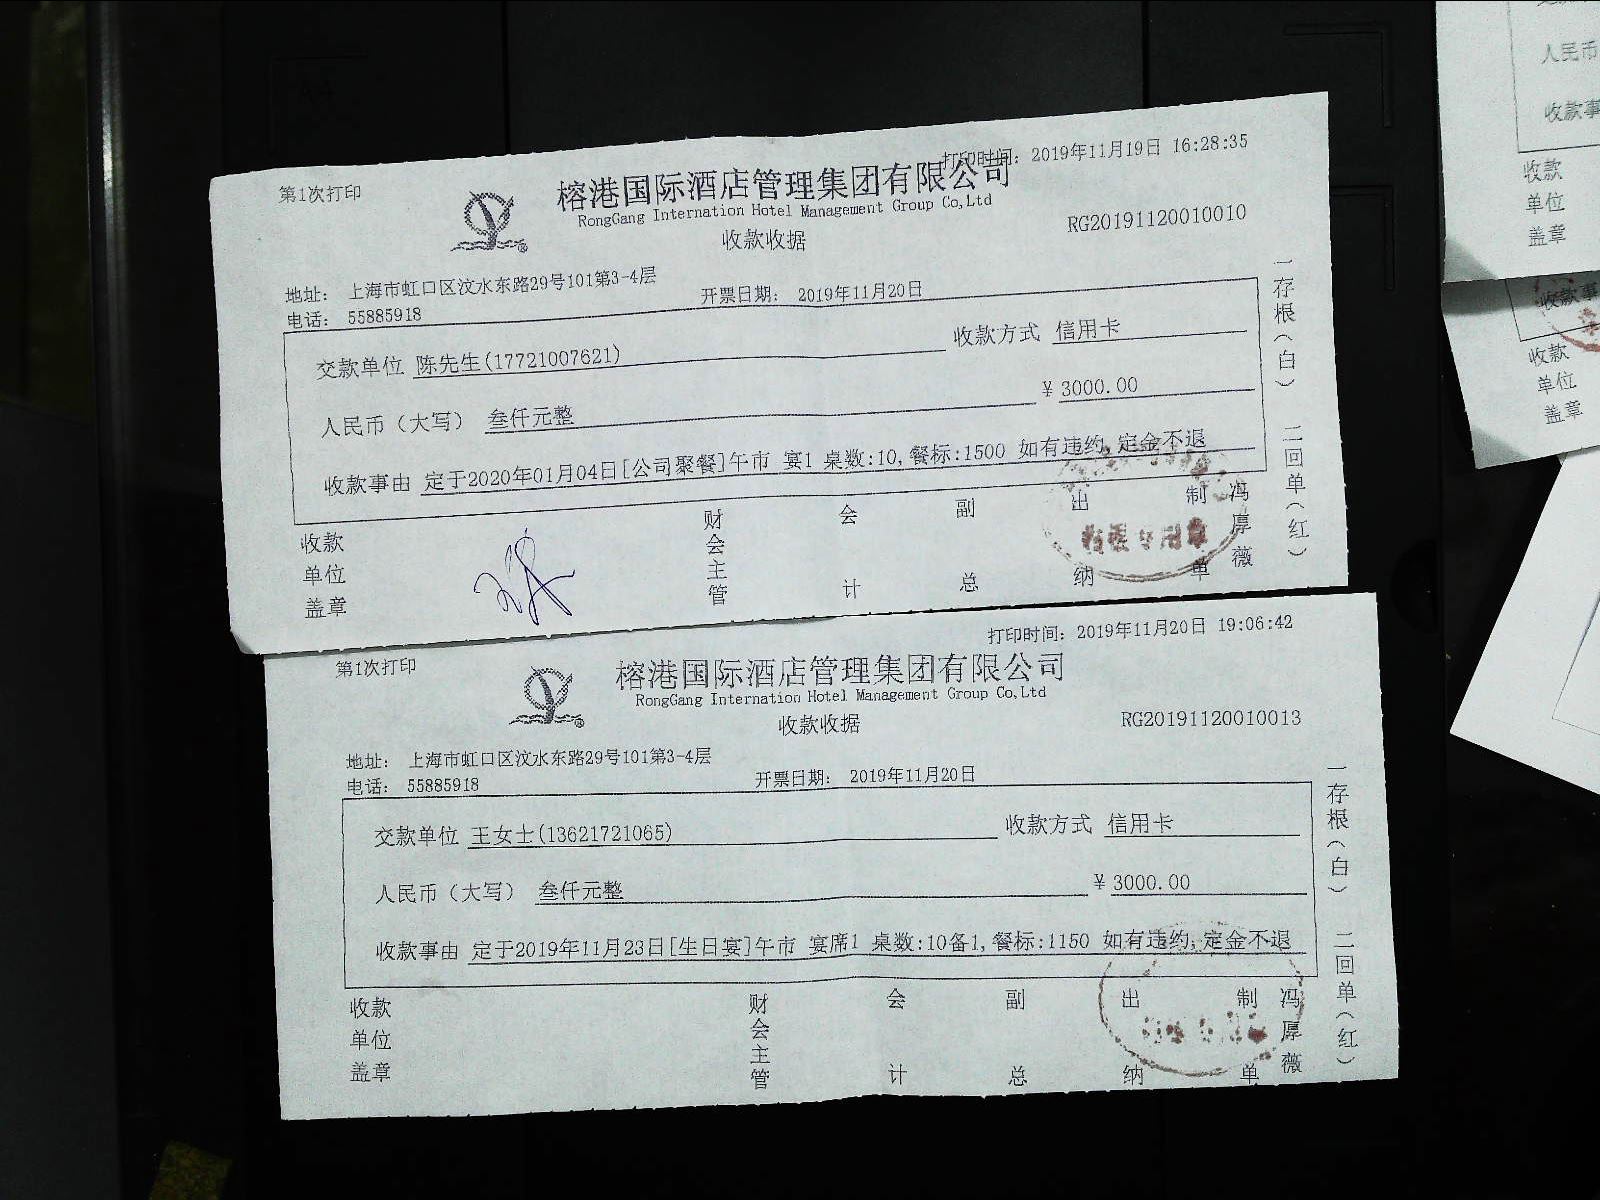 第1次打印
打印时间：2019年11月19日 16:28:35
榕港国际酒店管理集团有限公司
RongGang Internation Hotel Management Group Co,Ltd
收款收据
RG20191120010010
地址： 上海市虹口区汶水东路29号101第3-4层
电话： 55885918
开票日期： 2019年11月20日
交款单位 陈先生(17721007621)
收款方式 信用卡
人民币（大写） 叁仟元整
￥ 3000.00
收款事由 定于2020年01月04日[公司聚餐]午市 宴1 桌数:10,餐标:1500 如有违约,定金不退
收款单位盖章
财会主管
会计
副总
出纳
制单
冯厚薇
一存根（白） 二回单（红）
第1次打印
打印时间：2019年11月20日 19:06:42
榕港国际酒店管理集团有限公司
RongGang Internation Hotel Management Group Co,Ltd
收款收据
RG20191120010013
地址： 上海市虹口区汶水东路29号101第3-4层
电话： 55885918
开票日期： 2019年11月20日
交款单位 王女士(13621721065)
收款方式 信用卡
人民币（大写） 叁仟元整
￥ 3000.00
收款事由 定于2019年11月23日[生日宴]午市 宴席1 桌数:10备1,餐标:1150 如有违约,定金不退
收款单位盖章
财会主管
会计
副总
出纳
制单
冯厚薇
一存根（白） 二回单（红）
人民币
收款事
收款
单位
盖章
收款事
收款
单位
盖章